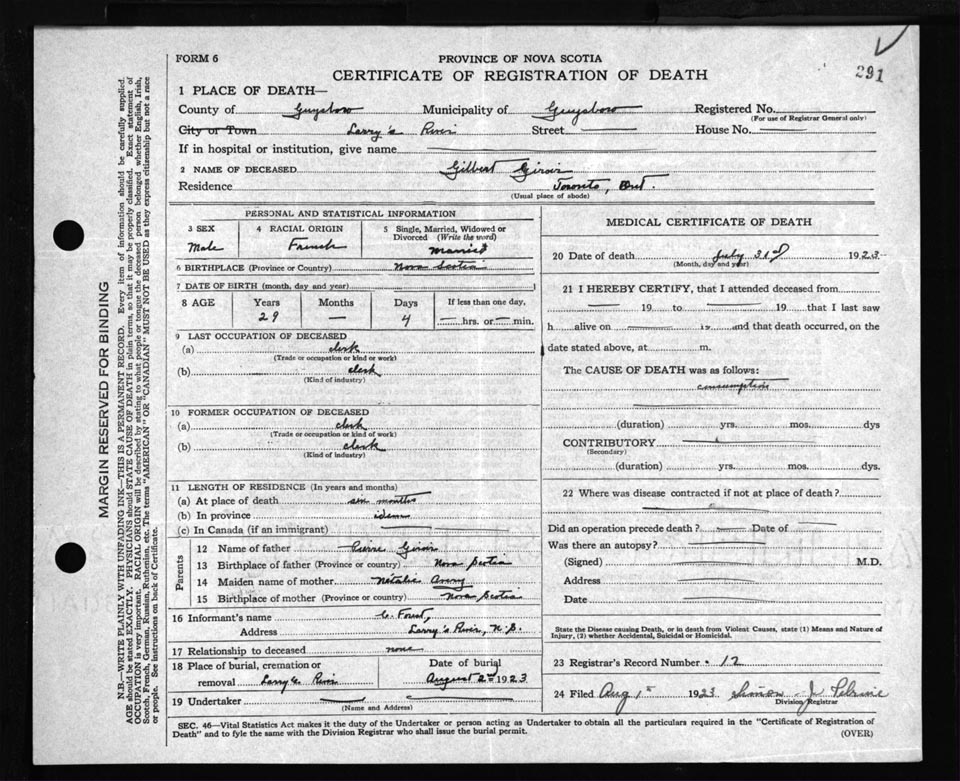 291
FORM 6
PROVINCE OF NOVA SCOTIA
CERTIFICATE OF REGISTRATION OF DEATH
1 PLACE OF DEATH—
County of Guysboro Municipality of Guysboro Registered No.
(For use of Registrar General only)
City or Town Larry's River Street House No.
If in hospital or institution, give name
2 NAME OF DECEASED Gilbert Giroir
Residence Toronto, Ont.
(Usual place of abode)
PERSONAL AND STATISTICAL INFORMATION
3 SEX Male
4 RACIAL ORIGIN French
5 Single, Married, Widowed or Divorced (Write the word) Married
6 BIRTHPLACE (Province or Country) Nova Scotia
7 DATE OF BIRTH (month, day and year)
8 AGE Years Months Days If less than one day,
29 — 4 hrs. or min.
9 LAST OCCUPATION OF DECEASED
(a) clerk
(Trade or occupation or kind or work)
(b) clerk
(Kind of industry)
10 FORMER OCCUPATION OF DECEASED
(a) clerk
(Trade or occupation or kind of work)
(b) clerk
(Kind of industry)
11 LENGTH OF RESIDENCE (In years and months)
(a) At place of death months
(b) In province idem
(c) In Canada (if an immigrant)
Parents
12 Name of father Pierre Giroir
13 Birthplace of father (Province or country) Nova Scotia
14 Maiden name of mother Natalie Avery
15 Birthplace of mother (Province or country) Nova Scotia
16 Informant's name C. Forest,
Address Larry's River, N.S.
17 Relationship to deceased none
18 Place of burial, cremation or removal Larry's River
Date of burial August 2nd 1923
19 Undertaker
(Name and Address)
MEDICAL CERTIFICATE OF DEATH
20 Date of death July 31st 1923
(Month, day and year)
21 I HEREBY CERTIFY, that I attended deceased from
19 to 19 that I last saw
h alive on 19 and that death occurred, on the
date stated above, at m.
The CAUSE OF DEATH was as follows:
consumption
(duration) yrs. mos. dys
CONTRIBUTORY
(Secondary)
(duration) yrs. mos. dys.
22 Where was disease contracted if not at place of death?
Did an operation precede death? Date of
Was there an autopsy?
(Signed) M.D.
Address
Date
State the Disease causing Death, or in death from Violent Causes, state (1) Means and Nature of
Injury, (2) whether Accidental, Suicidal or Homicidal.
23 Registrar's Record Number 12
24 Filed Aug 1st 1923 Simon J Pelrine
Division Registrar
SEC. 46—Vital Statistics Act makes it the duty of the Undertaker or person acting as Undertaker to obtain all the particulars required in the "Certificate of Registration of
Death" and to fyle the same with the Division Registrar who shall issue the burial permit.
(OVER)
MARGIN RESERVED FOR BINDING
N.B.—WRITE PLAINLY WITH UNFADING INK—THIS IS A PERMANENT RECORD. Every item of information should be carefully supplied.
AGE should be stated EXACTLY. PHYSICIANS should STATE CAUSE OF DEATH in plain terms, so that it may be properly classified. Exact statement of
OCCUPATION is very important. RACIAL ORIGIN will be described by stating to what people or tongue the deceased person belonged whether English, Irish,
Scotch, French, German, Russian, Ruthenian, etc. The terms "AMERICAN" OR "CANADIAN" MUST NOT BE USED as they express citizenship but not a race
or people. See instructions on back of Certificate.